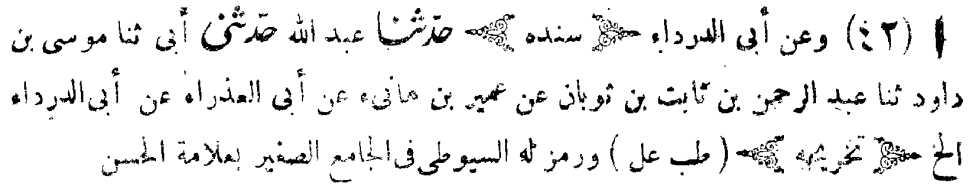 (٤٢) وعن أبى الدرداء ﴿ سنده ﴾ حدّثنا عبد الله حدّثنى أبى ثنا موسى بن
داود ثنا عبد الرحمن بن ثابت بن ثوبان عن عمير بن هانىء عن أبى العذراء عن أبى الدرداء
الخ ﴿ تخريجه ﴾ ( طب عل ) ورمز له السيوطى فى الجامع الصغير بعلامة الحسن